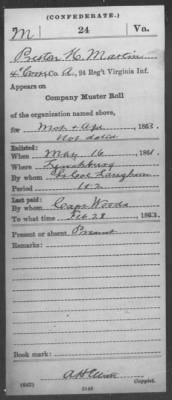 (CONFEDERATE.)
M 24 Va.
Preston H. Martin
Co. A., 24 Reg't Virginia Inf.
Appears on
Company Muster Roll
of the organization named above,
for Mch & Apr, 1863.
Not dated
Enlisted:
When May 16, 1861.
Where Lynchburg
By whom Lt Col Langhorn
Period
Last paid:
By whom Capt Woods
To what time Feb 28, 1863.
Present or absent Present
Remarks:
Book mark:
(642)
Copyist.